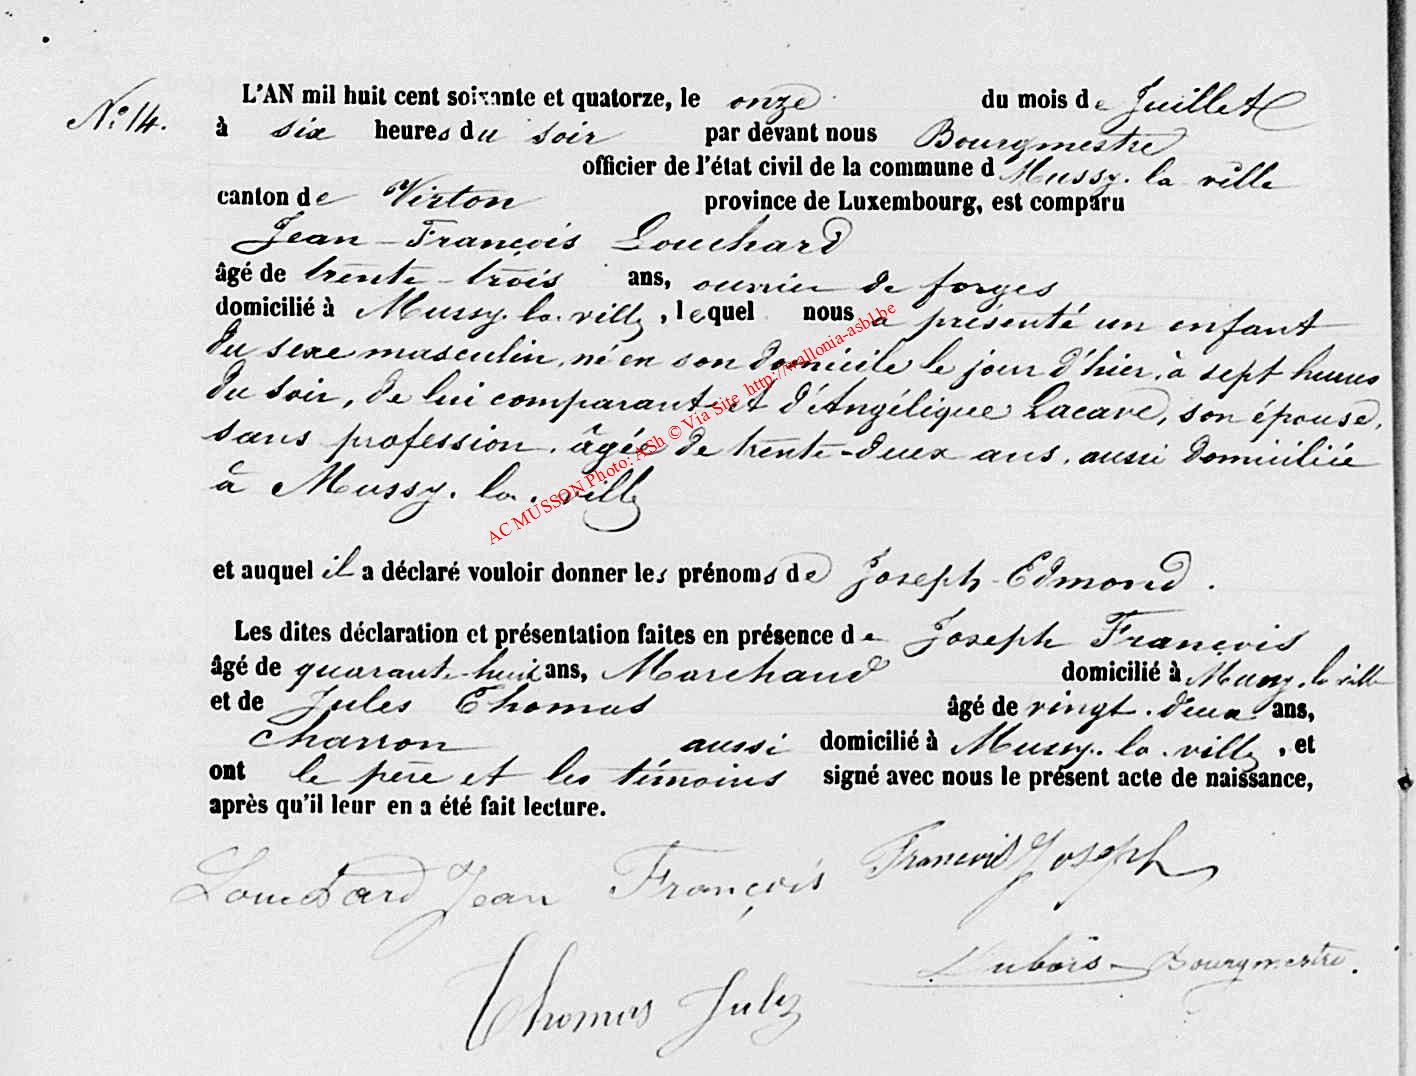 L'AN mil huit cent soixante et quatorze, le onze du mois de Juillet
N.° 14.
à six heures du soir par devant nous Bourgmestre
officier de l'état civil de la commune d Mussy-la-ville
canton de Virton province de Luxembourg, est comparu
Jean-François Louchard
âgé de trente-trois ans, ouvrier de forges
domicilié à Mussy-la-ville, lequel nous a présenté un enfant
du sexe masculin, né en son domicile le jour d'hier, à sept heures
du soir, de lui comparant et d'Angélique Lacave, son épouse,
sans profession, âgée de trente-deux ans, aussi domiciliée
à Mussy-la-ville
AC MUSSON Photo: ASh © Via Site http://wallonia-asbl.be
et auquel il a déclaré vouloir donner les prénoms de Joseph-Edmond.
Les dites déclaration et présentation faites en présence de Joseph François
âgé de quarante-huit ans, Marchand domicilié à Mussy-la-ville
et de Jules Thomas âgé de vingt-deux ans,
charron aussi domicilié à Mussy-la-ville, et
ont le père et les témoins signé avec nous le présent acte de naissance,
après qu'il leur en a été fait lecture.
Louchard Jean François François Joseph
Dubois-Bourgmestre.
Thomas Jules